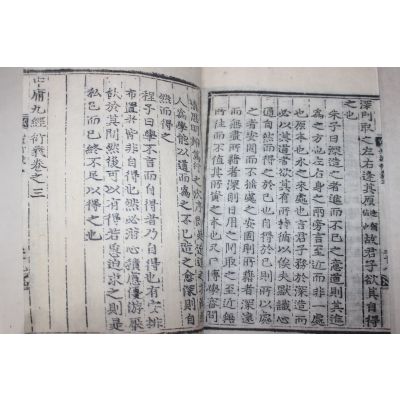 深則取之左右逢其原故君子欲其自得
之也
朱子曰深造之者進而不已之意道則其進
為之方也左右身之兩旁言至近而非一處
也原本也水之來處也言君子務於深造而
必以其道者欲其有所持循以俟夫默識心
通自然而得之於己也自得於己則所以處
之者安固而不搖處之安固則所藉者深遠
而無盡所藉者深則日用之間取之至近無
所往而不值其所資之本也又曰博學審問
人為學能以道而為之不已造之愈深則自
然而得之
程子曰學不言而自得者乃自得也有安排
布置者皆非自得也然必潛心積慮優游厭
飫於其間然後可以有得若急迫求之則是
私己而已終不足以得之也
中庸九經衍義卷之三